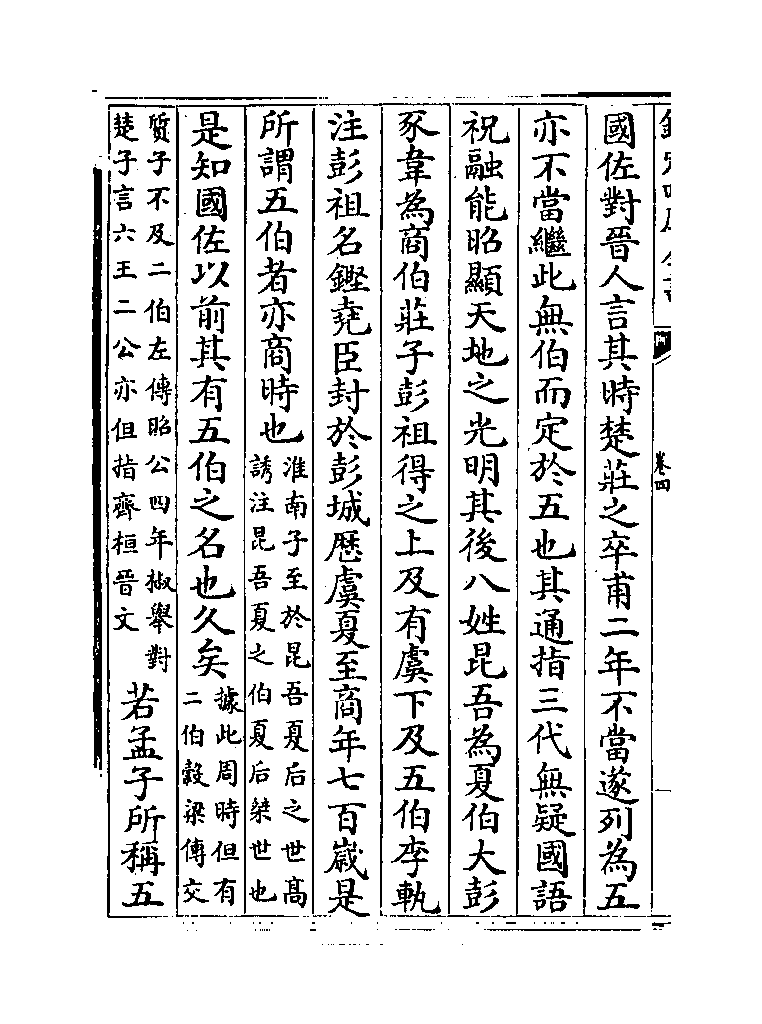 卷四
國佐對晉人言其時楚莊之卒甫二年不當遂列為五
亦不當繼此無伯而定於五也其通指三代無疑國語
祝融能昭顯天地之光明其後八姓昆吾為夏伯大彭
豕韋為商伯莊子彭祖得之上及有虞下及五伯李軌
注彭祖名鏗堯臣封於彭城歴虞夏至商年七百歲是
所謂五伯者亦商時也淮南子至於昆吾夏后之世髙
誘注昆吾夏之伯夏后桀世也
是知國佐以前其有五伯之名也久矣據此周時但有
二伯穀梁傳交
質子不及二伯左傳昭公四年椒舉對
楚子言六王二公亦但指齊桓晉文
若孟子所稱五